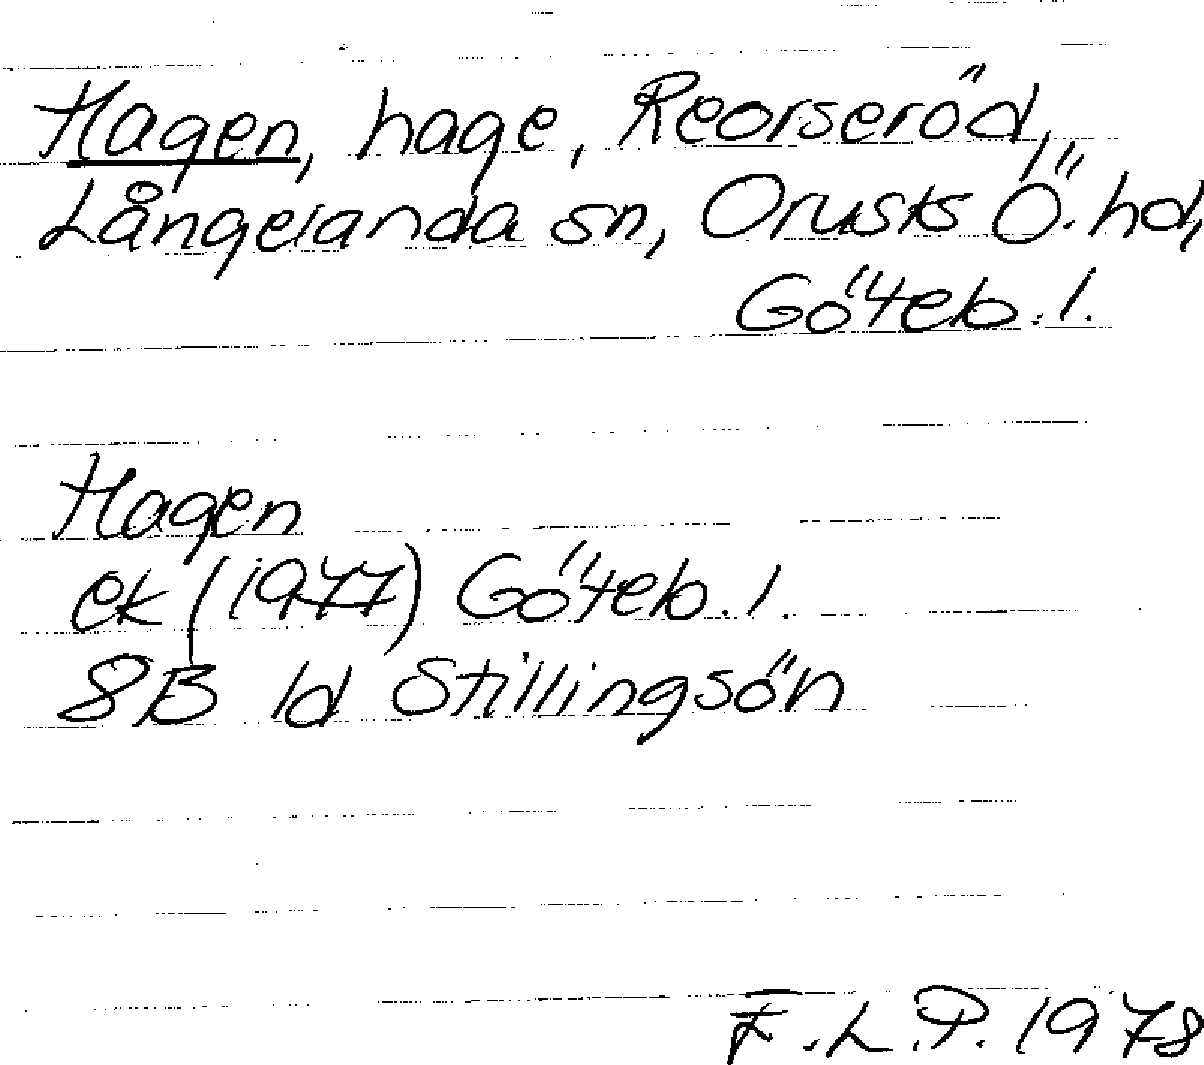 Hagen, hage, Reorseröd,
Långelanda sn, Orusts Ö. hd,
Göteb. l.
Hagen
ek (1977) Göteb. l.
8B 1d Stillingsön
F.L.P. 1978